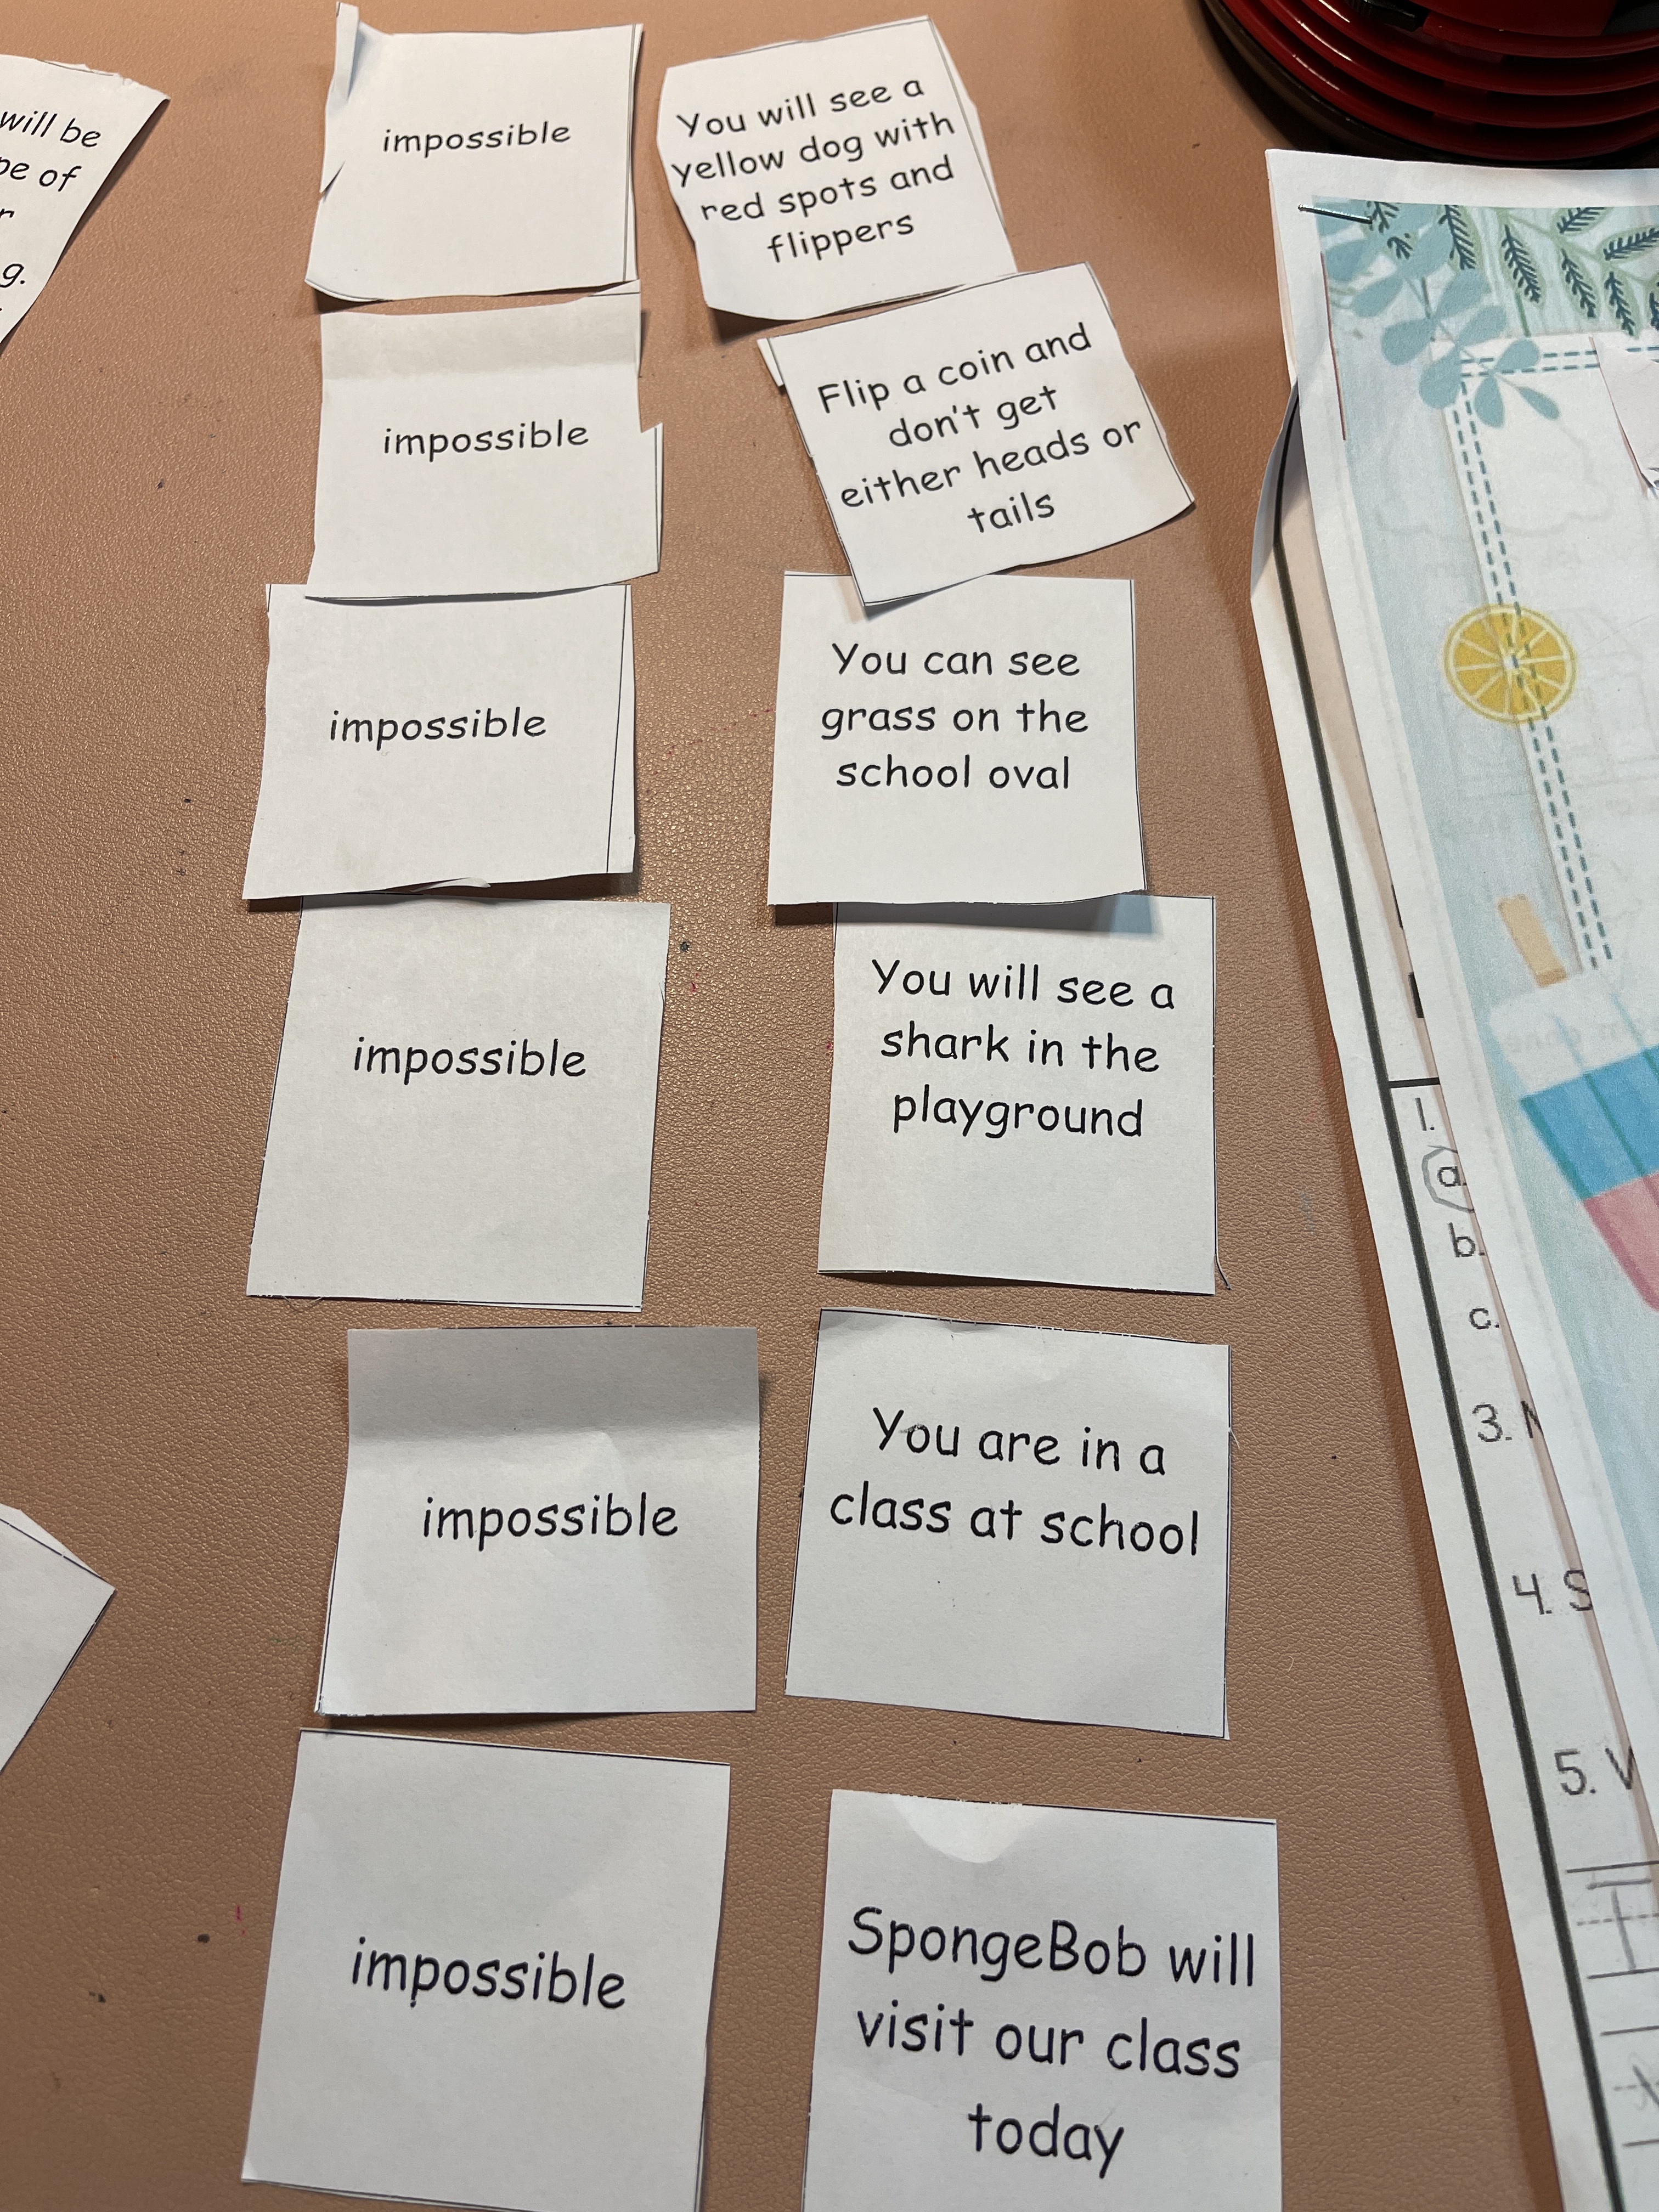 will be
of
g.
impossible
You will see a
yellow dog with
red spots and
flippers
impossible
Flip a coin and
don't get
either heads or
tails
impossible
You can see
grass on the
school oval
impossible
You will see a
shark in the
playground
impossible
You are in a
class at school
impossible
SpongeBob will
visit our class
today
1.
a.
b.
c.
3.
4. S
5.